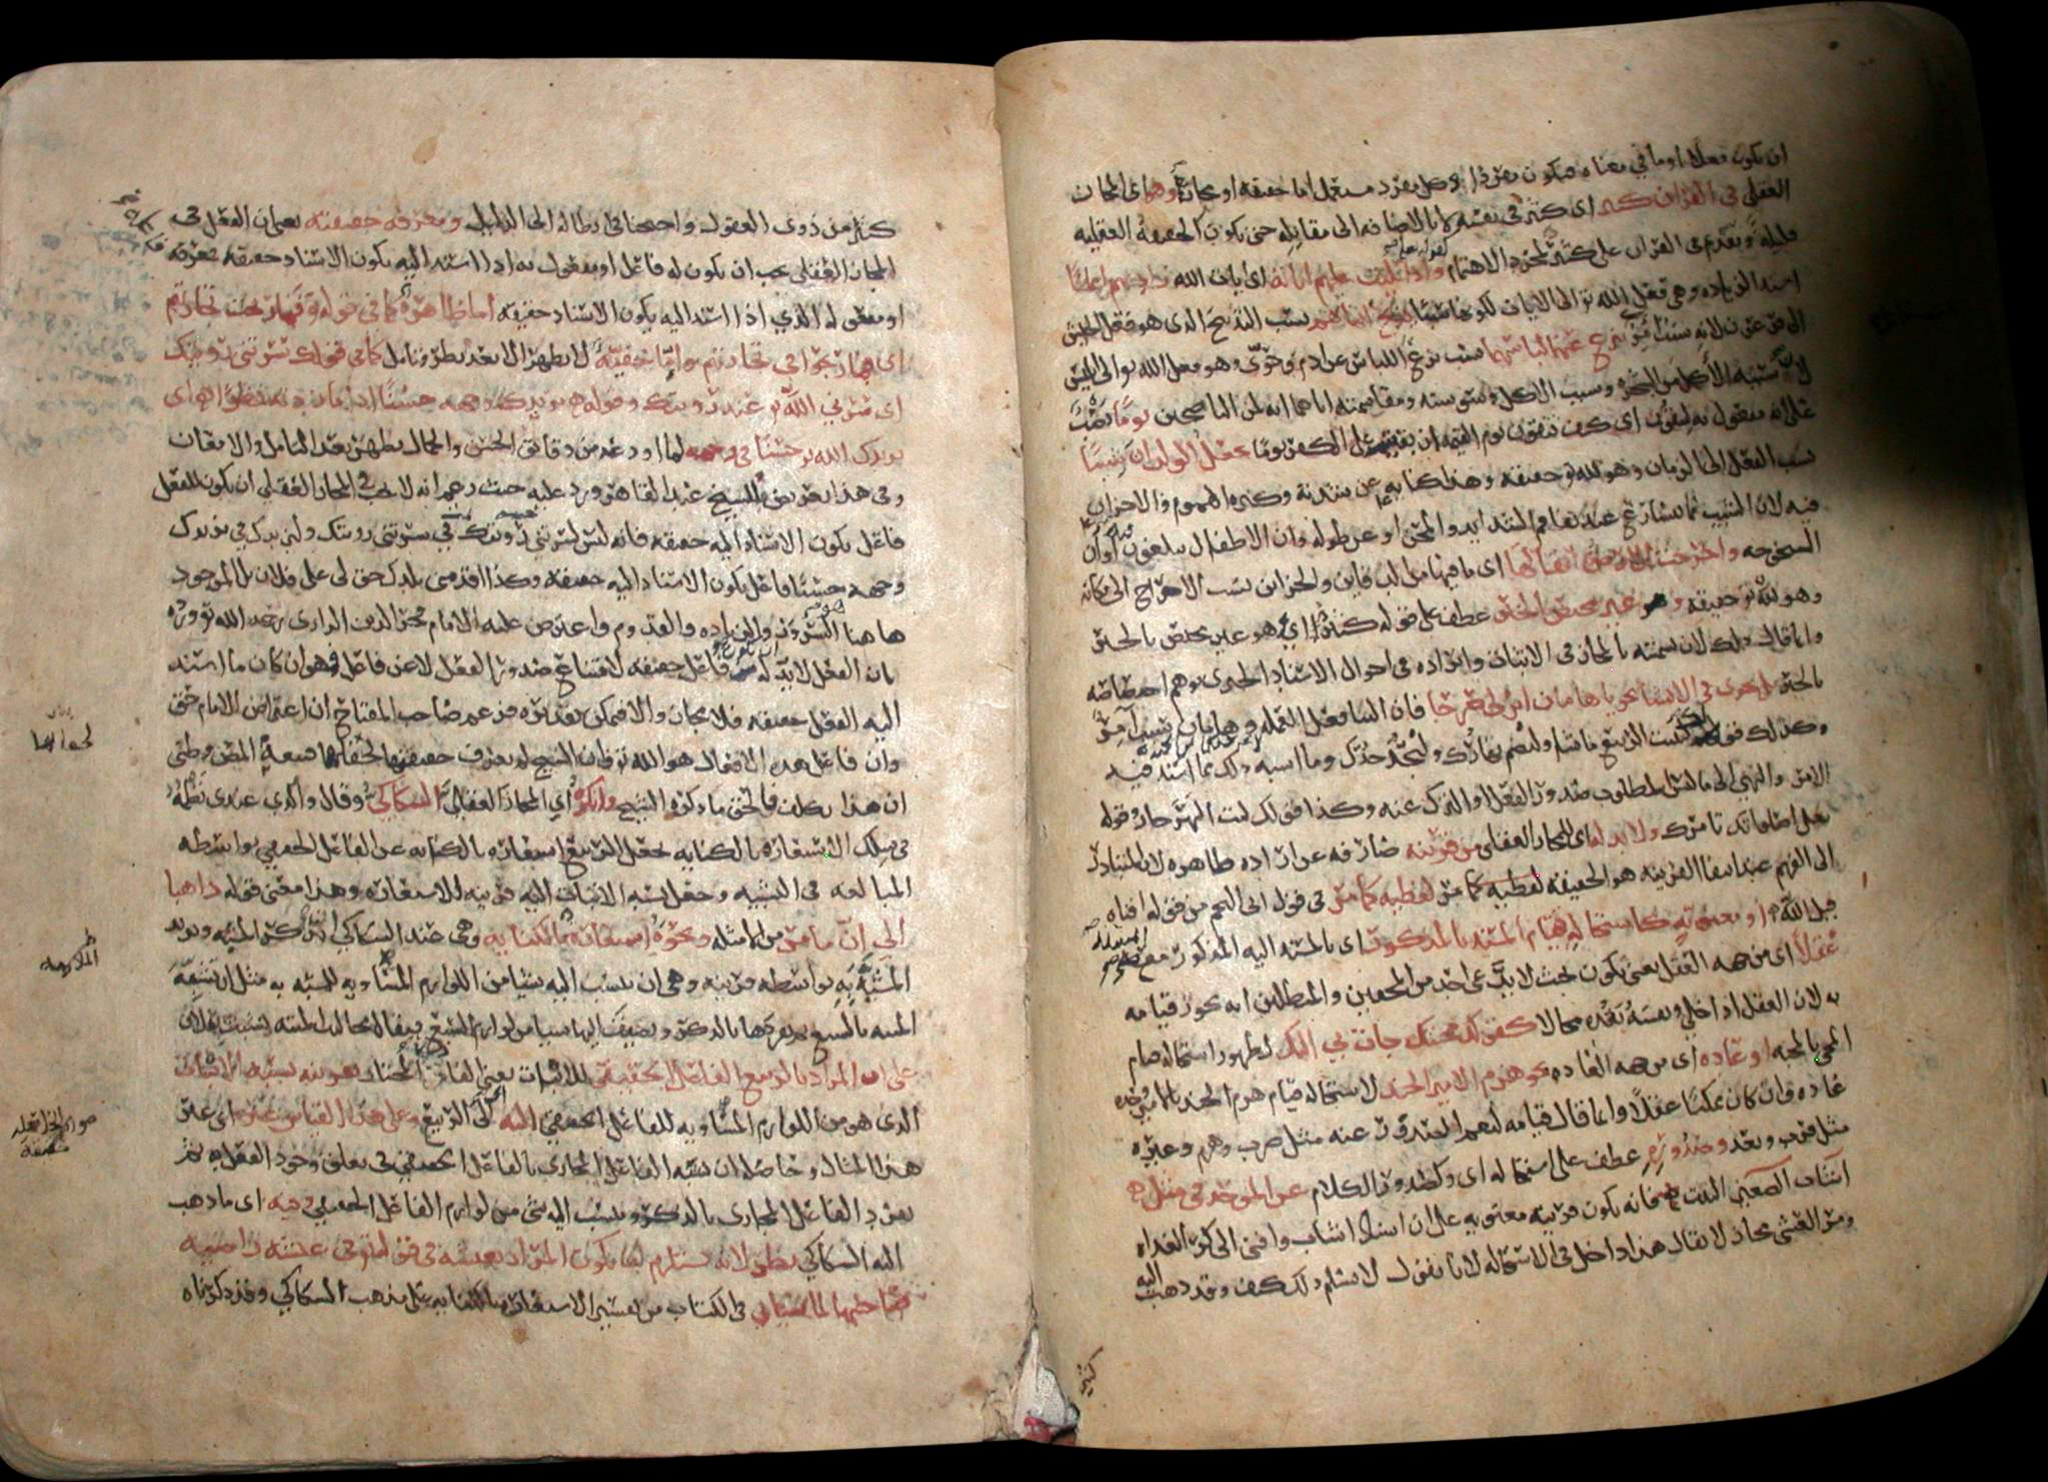 ان يكون فعلا او ما في معناه فيكون مفردا وكل مفرد مستعمل اما حقيقة او مجاز وهو اي المجاز
العقلي في القران كثير اي كثير في نفسه لا بالاضافه الى مقابله حتى يكون الحقيقة العقليه
قليلة وتقدم في القران على كثير لمجرد الاهتمام واذا تليت عليهم اياته اي ايات الله زادتهم ايمانا
اسند الزياده وهي فعل الله تو الى الايات لكونها سببا يذبح ابناءهم نسب التذبيح الذي هو فعل الجيش
الى فرعون لانه سبب امر ينزع عنهما لباسهما نسب نزع اللباس عن ادم وحوى وهو فعل الله تو الى ابليس
لان سببه الاكل من الشجرة وسبب الاكل وسوسته ومقاسمته اياهما انه لمن الناصحين يوما نصب
على انه مفعول به لتتقون اي كيف تتقون يوم القيمه ان بقيتم على الكفر يوما يجعل الولدان شيبا
نسب الفعل الى الزمان وهو لله تو حقيقه وهذا كنايه عن شدته وكثره الهموم والاحزان
فيه لان الشيب مما يتسارع عند تفاقم الشدايد والمحن او عن طوله وان الاطفال يبلغون فيه اوان
الشيخوخه واخرجت الارض اثقالها اي ما فيها من الدفاين والخزاين نسب الاخراج الى مكانه
وهو لله تو حقيقه وهو غير مختص بالخبر عطف على قوله كثير اي هو غير مختص بالخبر
وانما قال ذلك لان تسميته بالمجاز في الاثبات وايراده في احوال الاسناد الخبري يوهم اختصاصه
بالخبر بل يجري في الانشا نحو يا هامان ابن لي صرحا فان البنا فعل العمله وهامان سبب آمر
وكذلك قولك لينبت الربيع ما شا وليصم نهارك وليجد جدك وما اشبه ذلك مما اسند فيه
الامر والنهي الى ما ليس المطلوب صدور الفعل او الترك عنه وكذا قولك ليت النهر جار وقوله
تعالى اصلواتك تامرك ولا بد له اي للمجاز العقلي من قرينه صارفه عن ارادة ظاهره لان المتبادر
الى الفهم عند انتفا القرينه هو الحقيقه لفظيه كما مر في قول ابي النجم من قوله افناه
قيل الله او معنويه كاستحاله قيام المسند بالمذكور اي بالمسند اليه المذكور مع المسند
عقلا اي من جهه العقل يعني يكون بحيث لا يدعي احد من المحقين والمبطلين انه يجوز قيامه
به لان العقل اذا خلي ونفسه يعده محالا كقولك محبتك جاءت بي اليك لظهور استحاله قيام
المجي بالمحبه او عاده اي من جهه العاده نحو هزم الامير الجند لاستحاله قيام هزم الجند بالامير وحده
عاده وان كان ممكنا عقلا وانما قال قيامه ليعم الصدور عنه مثل ضرب وهزم وغيره
مثل قرب وبعد وصدوره عطف على استحاله اي وكصدور الكلام عن الموحد في مثل
اشاب الصغير البيت فانه يكون قرينه معنويه على ان اسناد اشاب وافنى الى كر الغداه
ومر العشي مجاز لا يقال هذا داخل في الاستحاله لانا نقول لا نسلم ذلك كيف وقد ذهب اليه
كثير
كثير من ذوي العقول واحتجنا في ابطاله الى الدليل ومعرفه حقيقته يعني ان الفعل في
المجاز العقلي يجب ان يكون له فاعل او مفعول به اذا اسند اليه يكون الاسناد حقيقه فمعرفه
او مفعوله الذي اذا اسند اليه يكون الاسناد حقيقه اما ظاهرة كما في قوله تو فما ربحت تجارتهم
اي فما ربحوا في تجارتهم واما خفية لا يظهر الا بعد نظر وتامل كما في قولك سرتني رويتك
اي سرني الله تو عند رويتك وقوله يزيدك وجهه حسنا اذا ما زدته نظرا اي
يزيدك الله تو حسنا في وجهه لما اودعه من دقايق الحسن والجمال يظهر بعد التامل والامعان
وفي هذا تعريض بالشيخ عبد القاهر ورد عليه حيث زعم انه لا يجب في المجاز العقلي ان يكون للفعل
فاعل يكون الاسناد اليه حقيقه فانه ليس لسرتني في سرتني رويتك ولا ليزيدك في يزيدك
وجهه حسنا فاعل يكون الاسناد اليه حقيقه وكذا اقدمني بلدك حق لي على فلان بل الموجود
هاهنا السرور والزياده والقدوم واعترض عليه الامام فخر الدين الرازي رحمه الله تو
بان الفعل لا بد له من فاعل حقيقه لامتناع صدور الفعل لا عن فاعل فهو ان كان ما اسند
اليه الفعل حقيقه فلا مجاز والا فيمكن تقديره فزعم صاحب المفتاح ان اعتراض الامام حق
وان فاعل هذه الافعال هو الله تو وان الشيخ لم يعرف حقيقتها لخفائها فتبعه المصن وظني
ان هذا تكلف فالحق ما ذكره الشيخ وانكره اي المجاز العقلي السكاكي وقال والذي عندي نظمه
في سلك الاستعاره بالكنايه بجعل الربيع استعاره بالكنايه عن الفاعل الحقيقي بواسطه
المبالغه في التشبيه وجعل نسبه الانبات اليه قرينه للاستعاره وهذا معنى قوله ذاهبا
الى ان ما مر من الامثله ونحوه استعارة بالكنايه وهي عند السكاكي ان تذكر المشبه وتريد
المشبه به بواسطه قرينه وهي ان ينسب اليه شيا من اللوازم المساويه للمشبه به مثل ان تشبه
المنيه بالسبع ثم تفردها بالذكر وتضيف اليها شيا من لوازم السبع فيقال مخالب المنيه نشبت بفلان
على ان المراد بالربيع الفاعل الحقيقي للانبات يعني القادر المختار بقرينه نسبه الانبات
الذي هو من اللوازم المساويه للفاعل الحقيقي اليه اي الى الربيع وعلى هذا القياس غيره اي غير
هذا المثال وحاصله ان تشبه الفاعل المجازي بالفاعل الحقيقي في تعلق وجود الفعل به ثم
تفرد الفاعل المجازي بالذكر وتنسب اليه شي من لوازم الفاعل الحقيقي وفيه اي ما ذهب
اليه السكاكي نظر لانه يستلزم ان يكون المراد بعيشه في قوله تو في عيشه راضيه
صاحبها لما سياتي في الكتاب من تفسير الاستعاره بالكنايه على مذهب السكاكي وقد ذكرناه